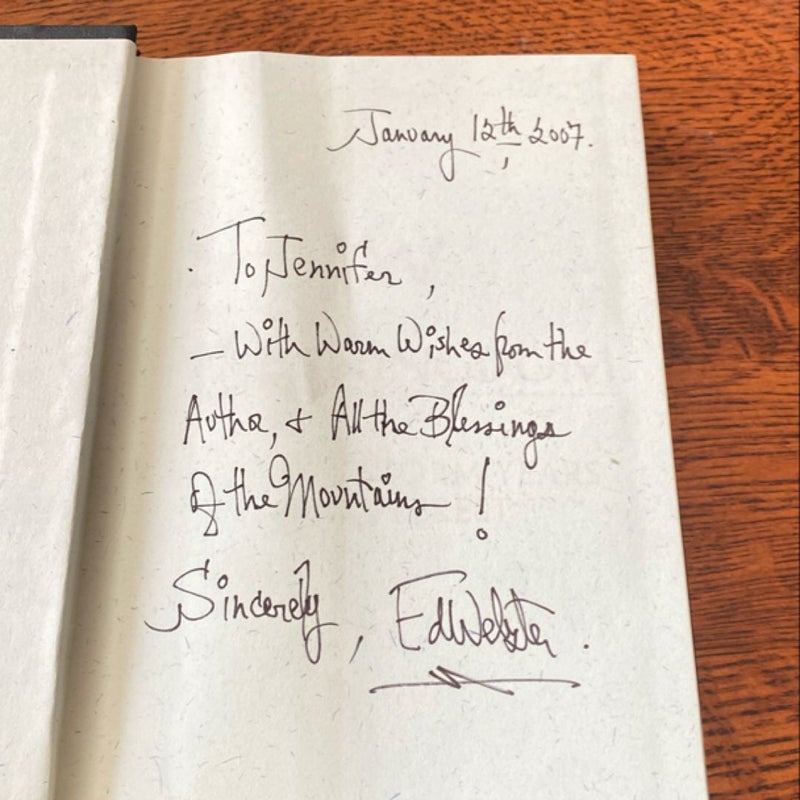 January 12th, 2007.
To Jennifer,
— With Warm Wishes from the
Author, & All the Blessings
Of the Mountains!
Sincerely, Ed Webster.